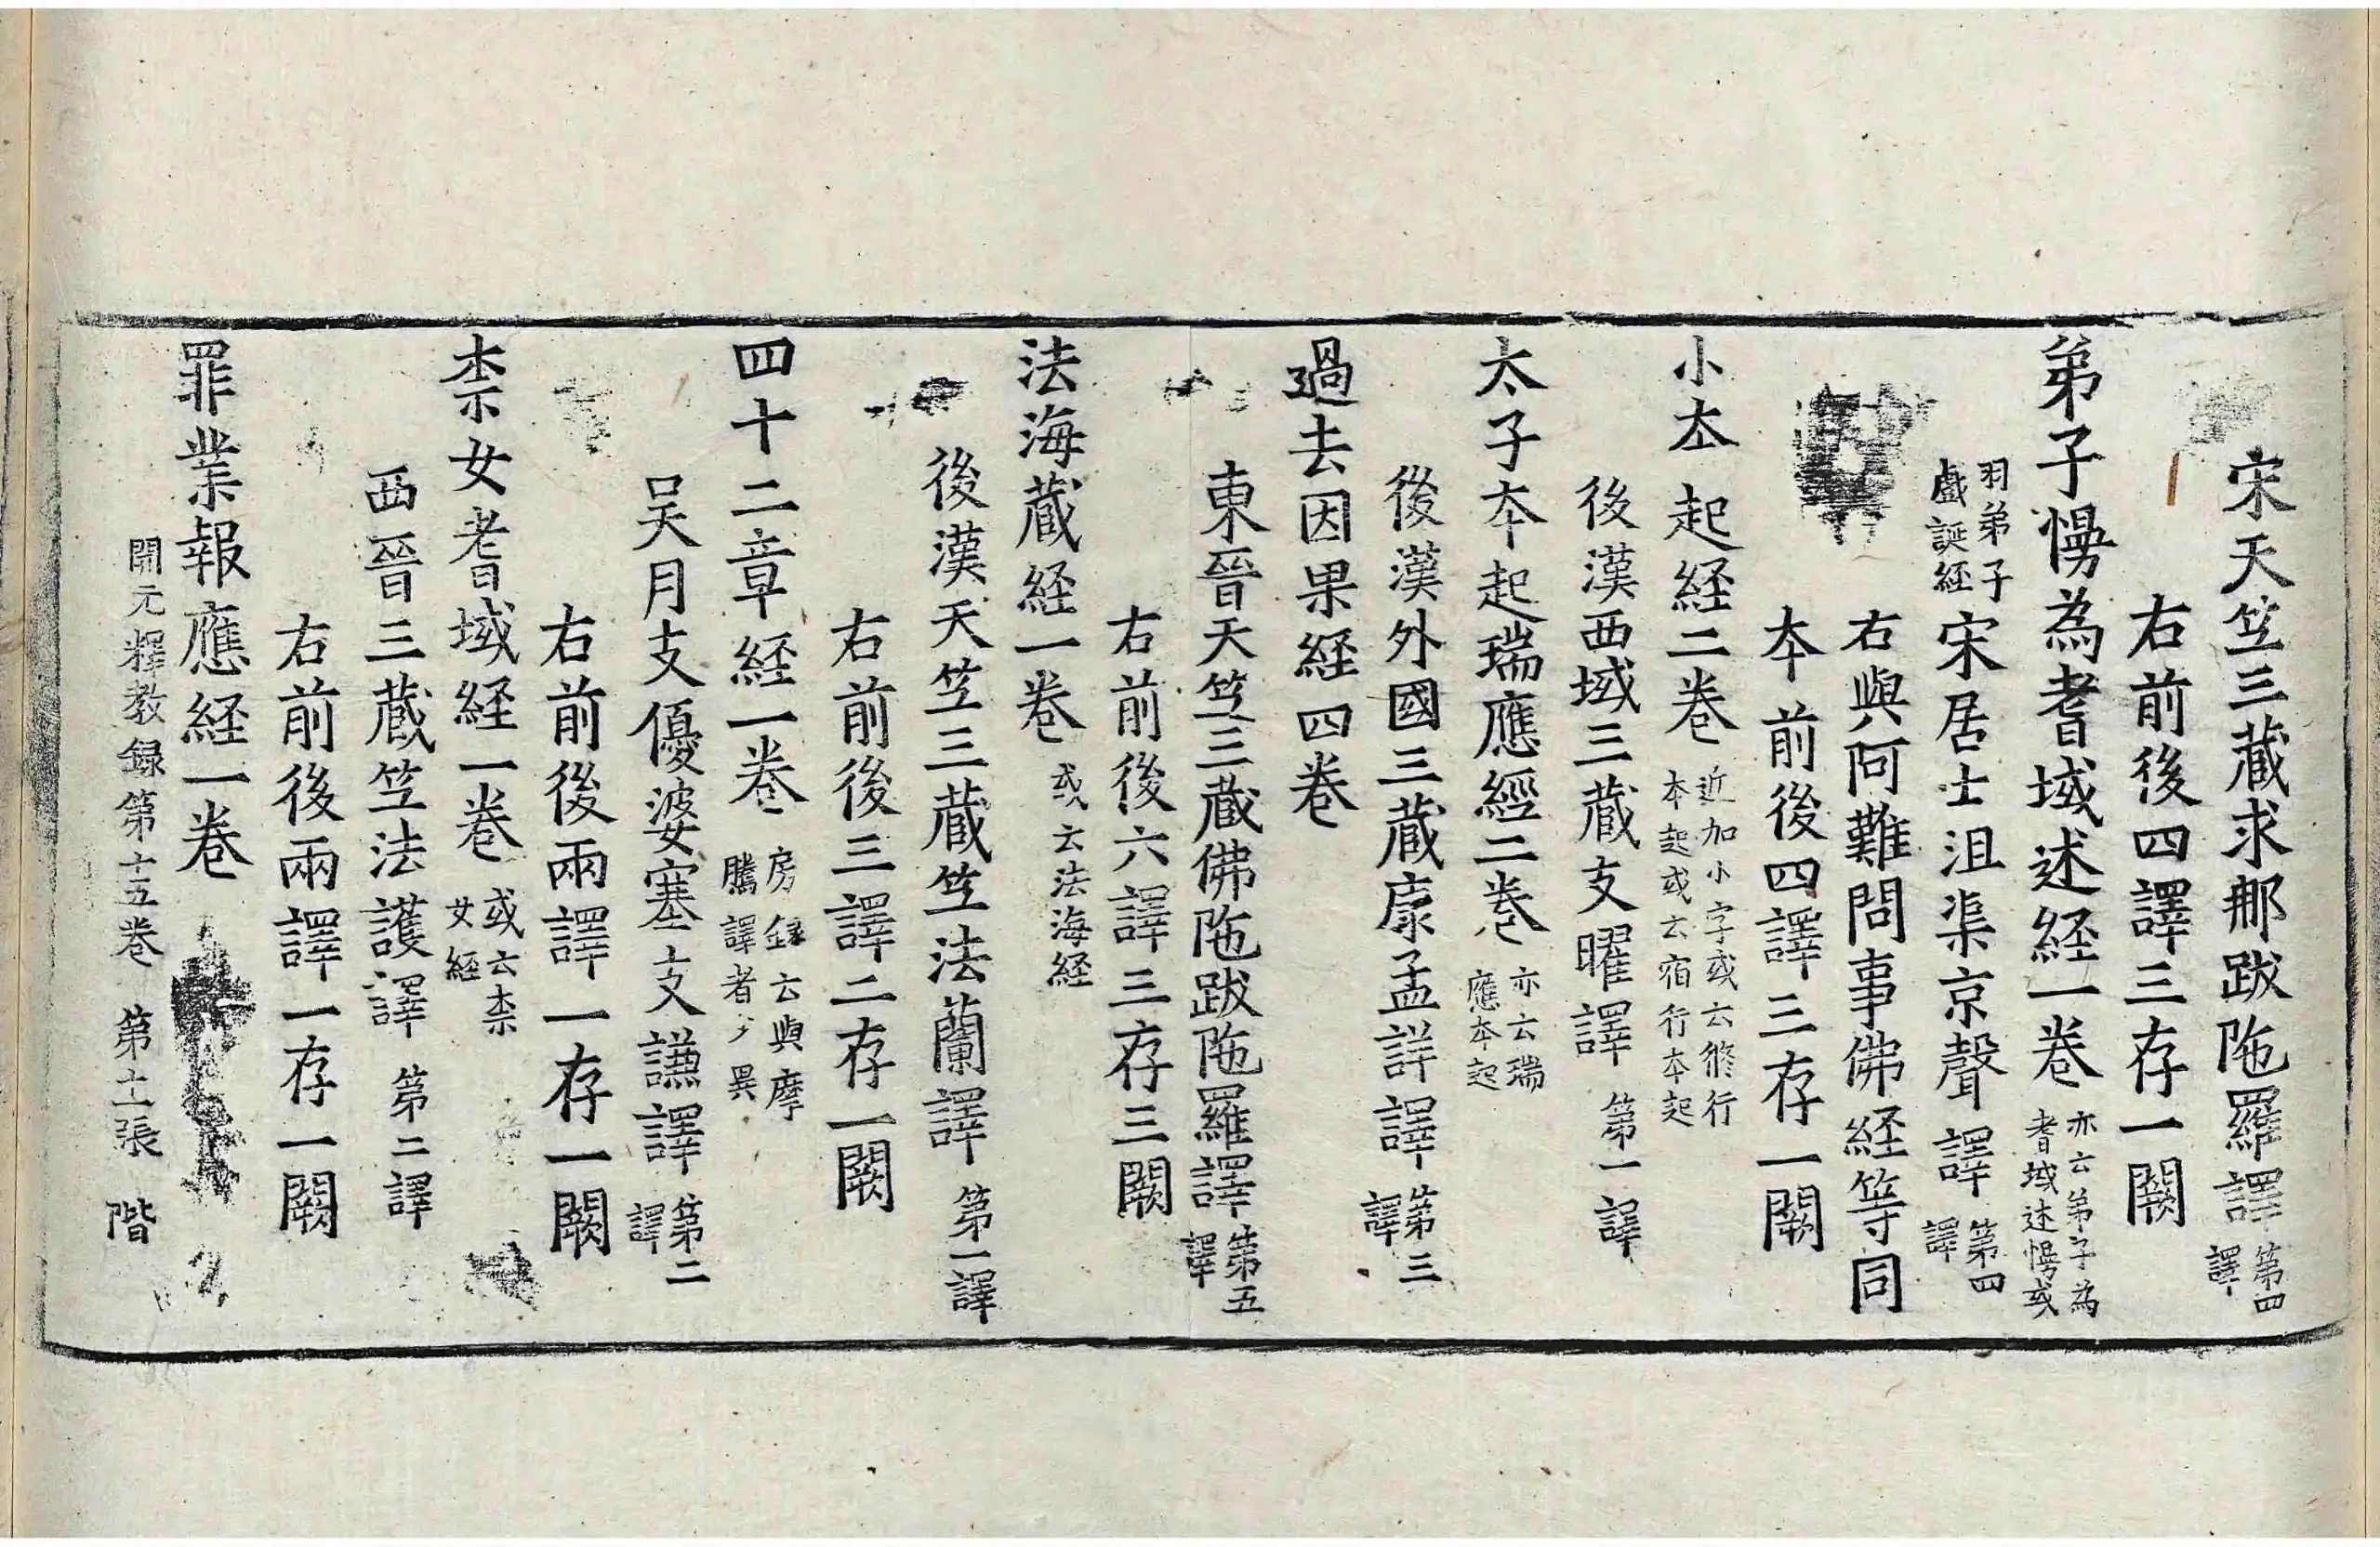 宋天竺三藏求那跋陁羅譯第四譯
右前後四譯三存一闕
弟子慢為耆域述経一卷亦云弟子為耆域述慢或
羽弟子戲誕経宋居士沮渠京聲譯第四譯
右與阿難問事佛経等同
夲前後四譯三存一闕
小夲起経二卷近加小字或云脩行本起或云宿行夲起
後漢西域三藏支曜譯第一譯
太子夲起瑞應經二卷亦云瑞應夲起
後漢外國三藏康孟詳譯第三譯
過去因果経四卷
東晉天竺三藏佛陁跋陁羅譯第五譯
右前後六譯三存三闕
法海藏経一卷或云法海経
後漢天竺三藏竺法蘭譯第一譯
右前後三譯二存一闕
四十二章経一卷房録云與摩騰譯者少異
吴月支優婆塞支謙譯第二譯
右前後兩譯一存一闕
柰女耆域経一卷或云柰女経
西晉三藏竺法護譯第二譯
右前後兩譯一存一闕
罪業報應経一卷
開元釋教録第十五卷 第十二張 階